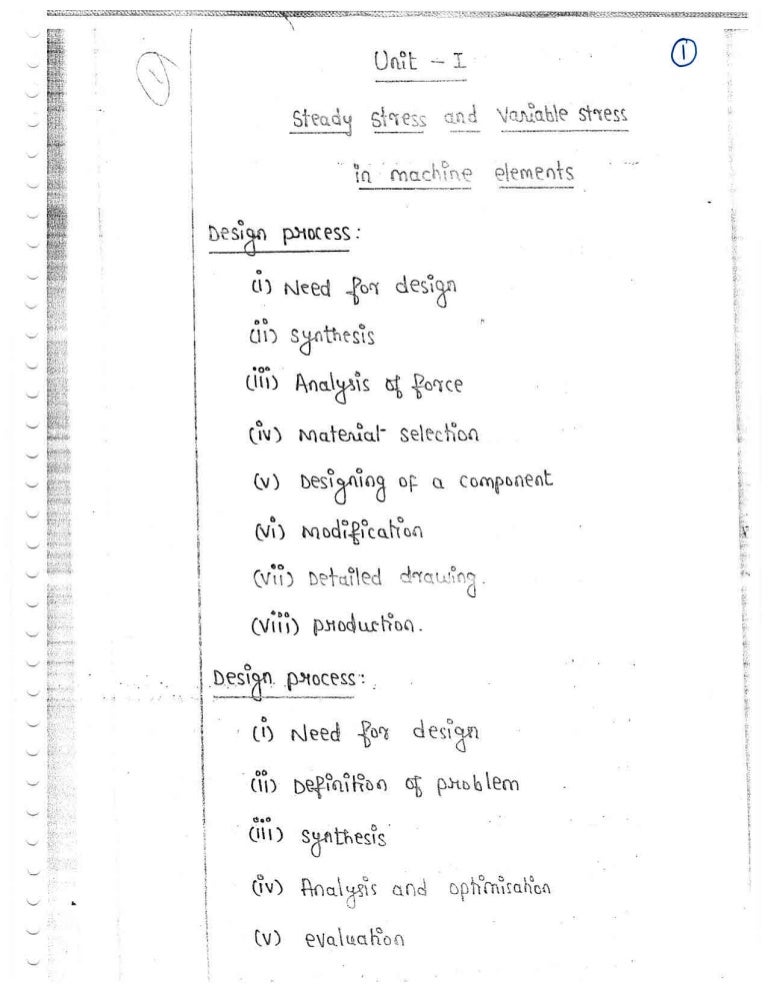 1
Unit - I
Steady stress and Variable stress
in machine elements
Design process:
(i) Need for design
(ii) synthesis
(iii) Analysis of force
(iv) Material selection
(v) Designing of a component
(vi) Modification
(vii) Detailed drawing.
(viii) production.
Design process:
(i) Need for design
(ii) Definition of problem
(iii) synthesis
(iv) Analysis and optimisation
(v) evaluation